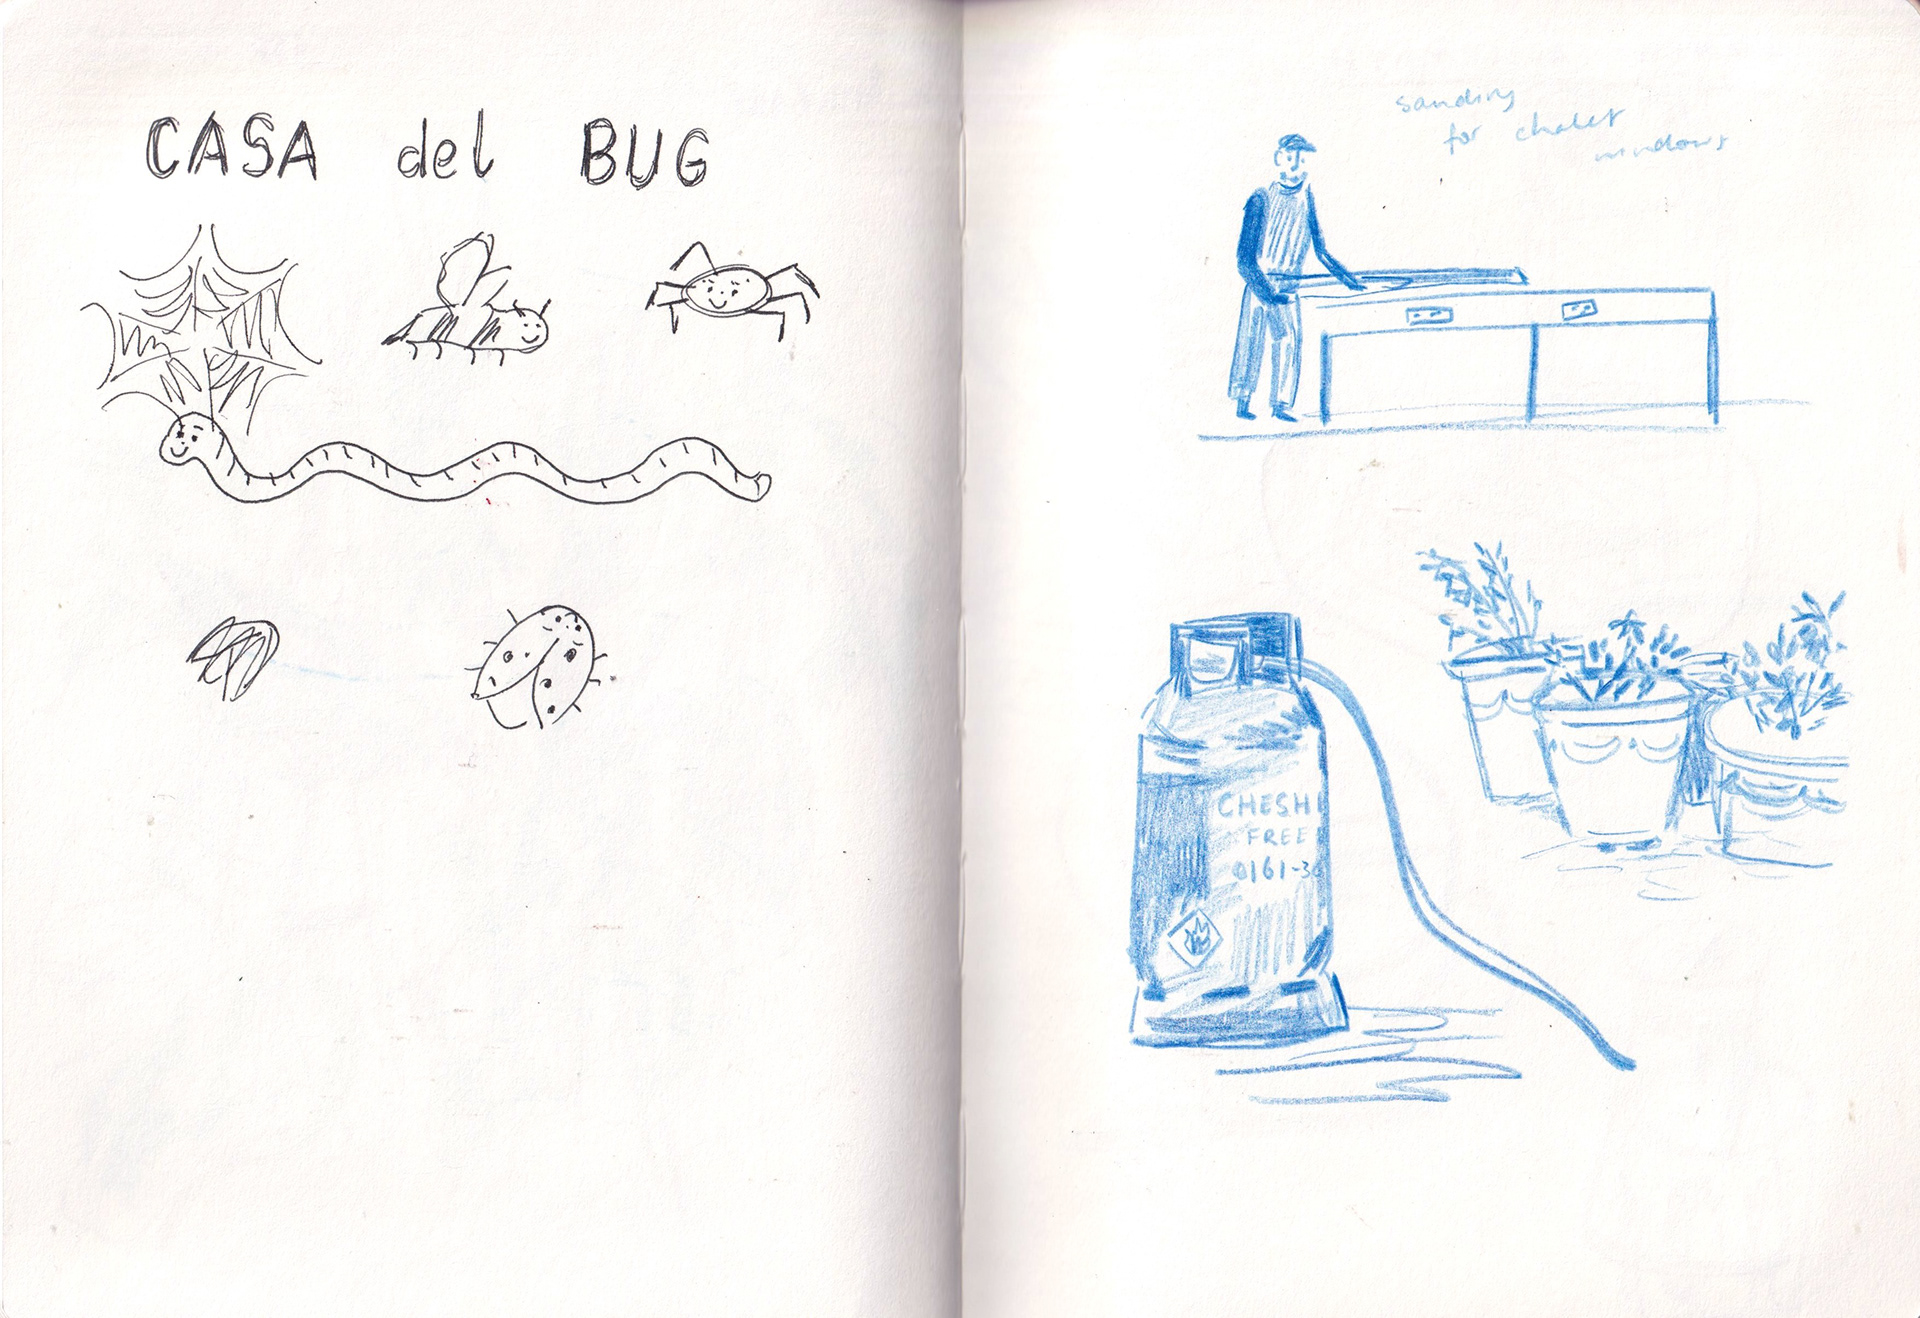 CASA del BUG
sanding
for chalet
windows
CHESHI
FREE
0161-30